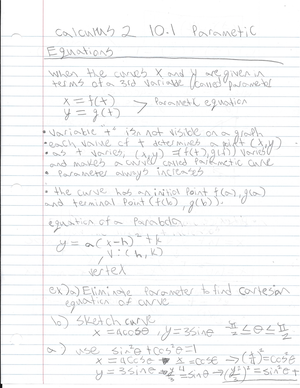 calculus 2 10.1 Parametric
Equations
when the curves x and y are given in
terms of a 3rd variable (called parameter
x = f(t)
y = g(t) > Parametric equation
• variable "t" is not visible on a graph
• each value of t determines a point (x,y)
• as t varies, (x,y) = (f(t), g(t)) varies
and makes a curve called Parametric curve
• Parameter always increases
• the curve has an initial Point f(a), g(a)
and terminal Point (f(b), g(b)).
equation of a Parabola
y = a(x-h)² + k
V: (h, k)
vertex
ex) a) Eliminate Parameter to find cartesian
equation of curve
b) sketch curve
x = 4cosθ, y = 3sinθ -π/2 ≤ θ ≤ π/2
a) use sin²θ + cos²θ = 1
x = 4cosθ x/4 = cosθ → (x/4)² = cos²θ
y = 3sinθ = sinθ → = sin²θ